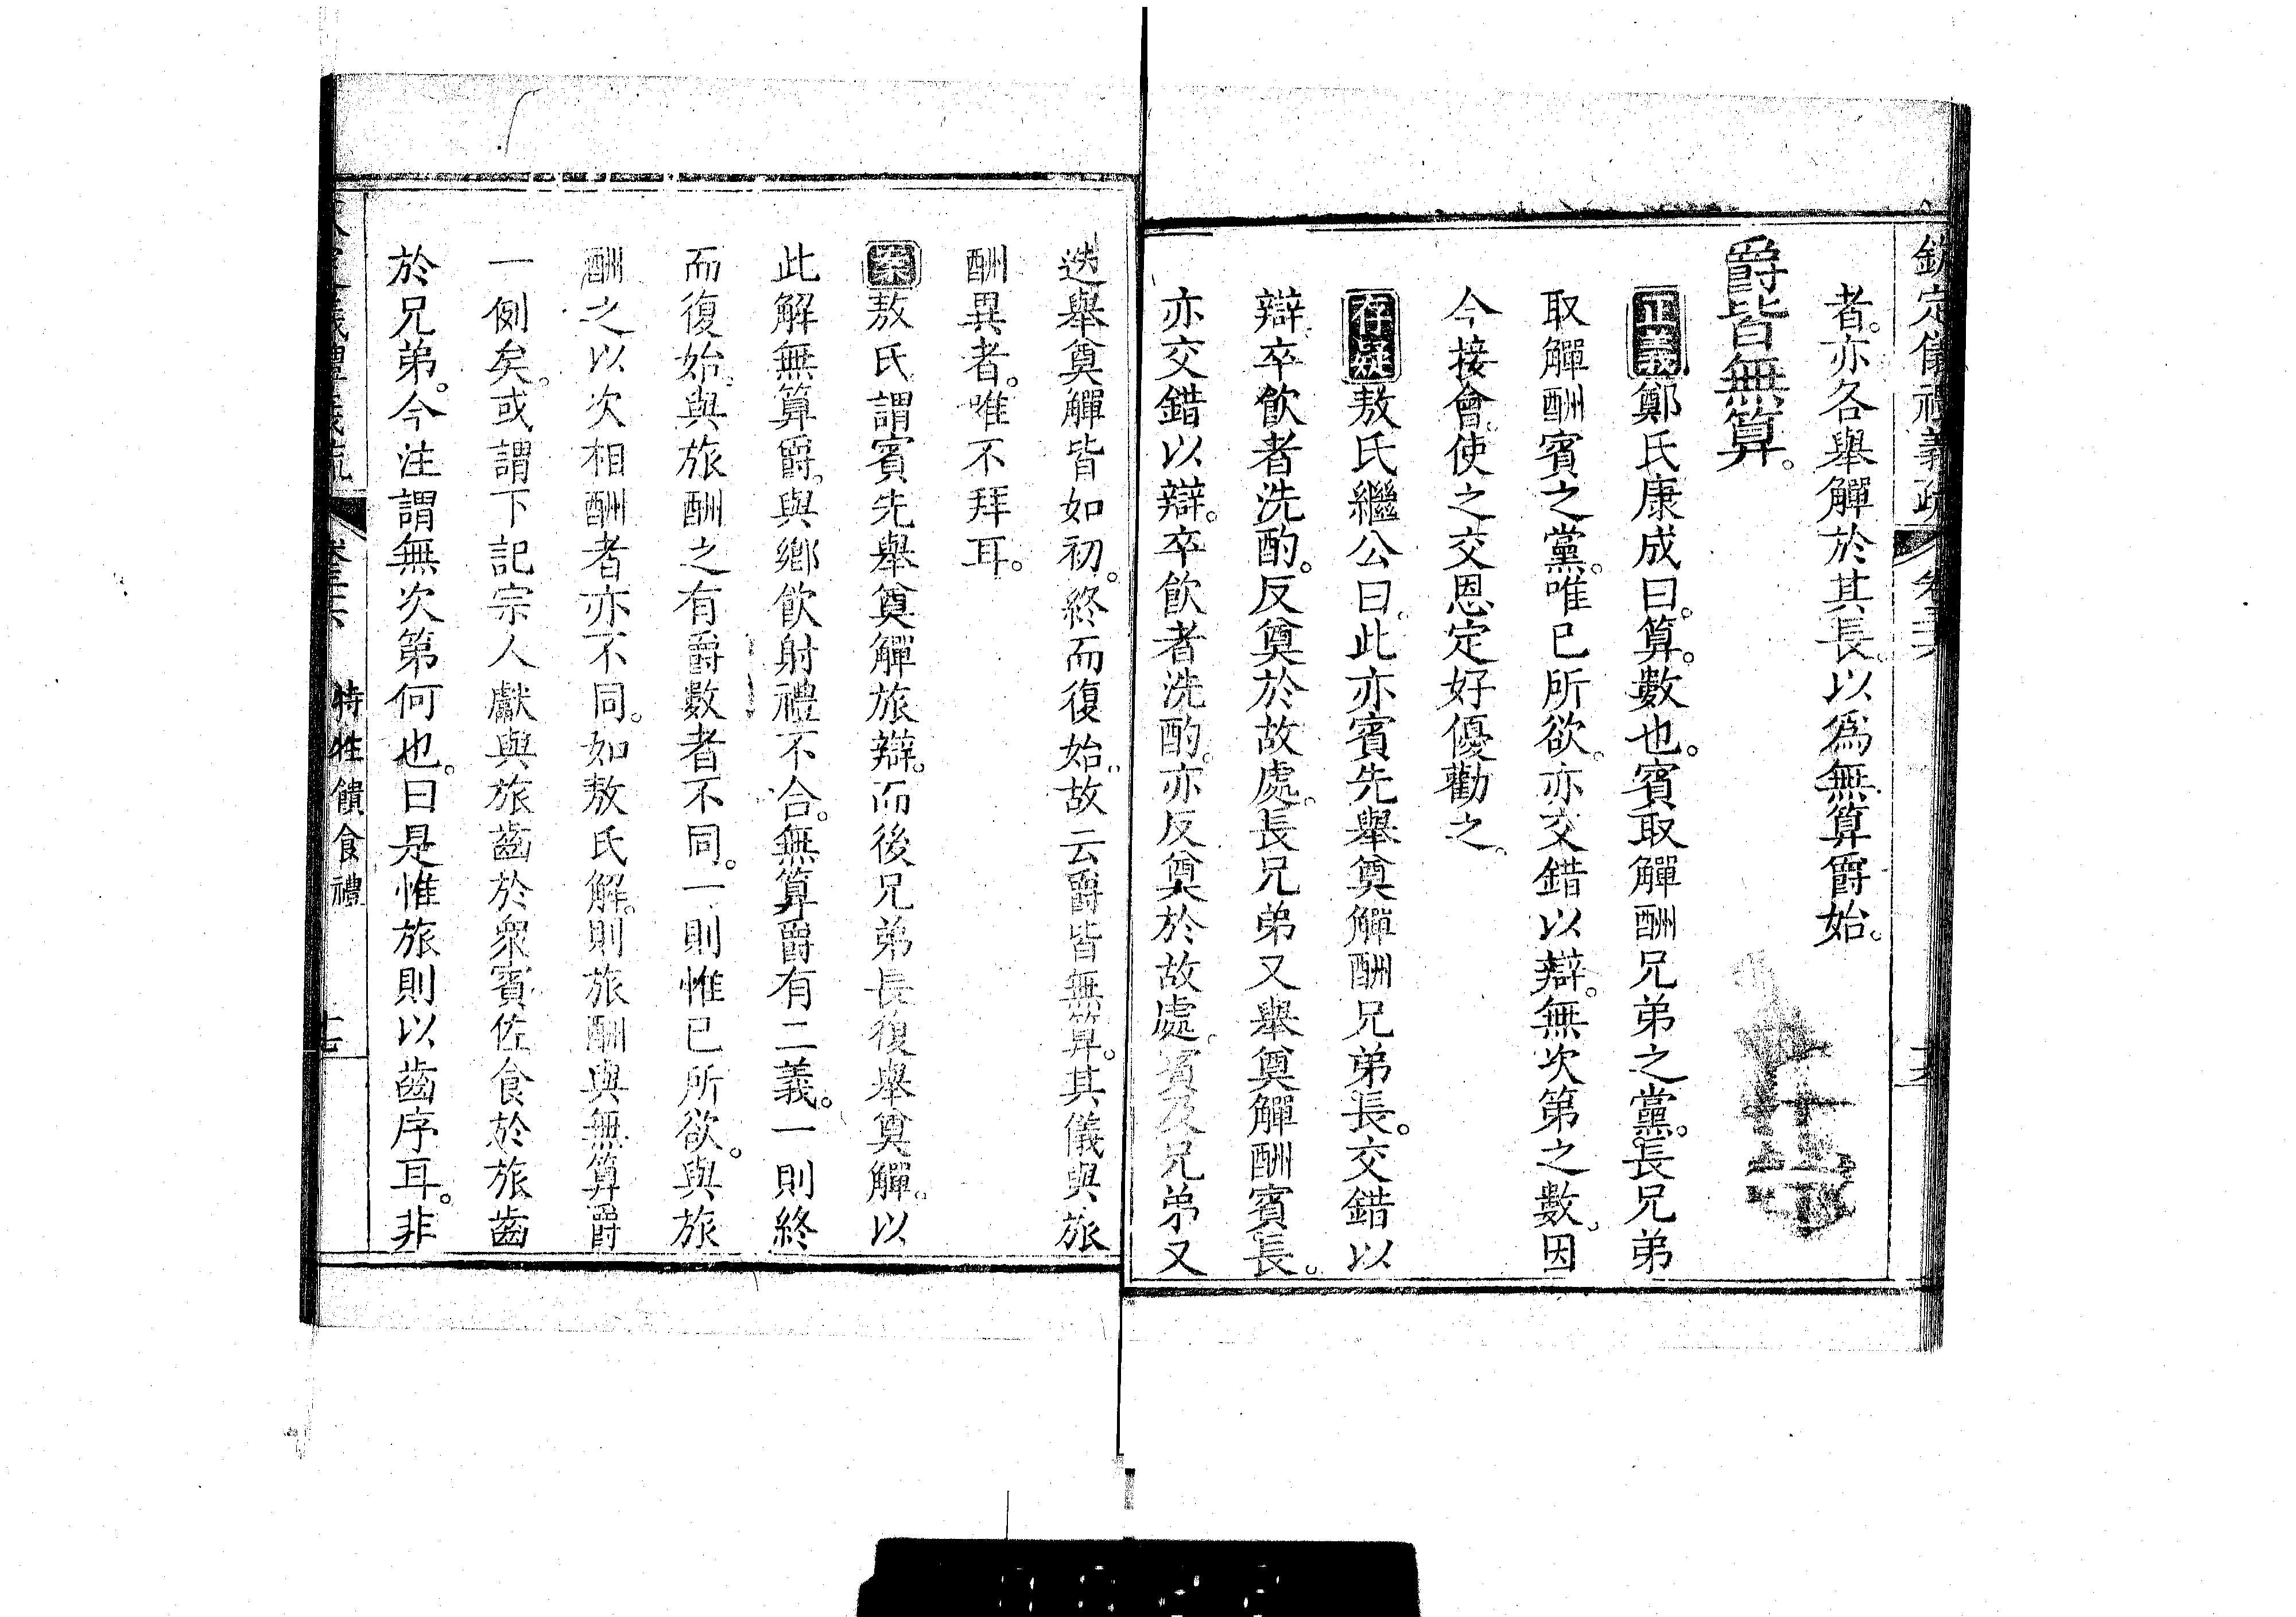 欽定儀禮義疏 卷三六
者。亦各舉觶於其長。以爲無算爵始。
爵皆無算。
正義鄭氏康成曰。算。數也。賓取觶酬兄弟之黨。長兄弟
取觶酬賓之黨。唯已所欲。亦交錯以辯。無次第之數。因
今接會。使之交恩定好優勸之。
存疑敖氏繼公曰。此亦賓先舉奠觶酬兄弟長。交錯以
辯。卒飲者洗酌。反奠於故處。長兄弟又舉奠觶酬賓長。
亦交錯以辯。卒飲者洗酌。亦反奠於故處。賓及兄弟又
迭舉奠觶皆如初。終而復始。故云爵皆無算。其儀與旅
酬異者。唯不拜耳。
案敖氏謂賓先舉奠觶旅辯。而後兄弟長復舉奠觶。以
此解無算爵。與鄉飲射禮不合。無算爵有二義。一則終
而復始。與旅酬之有爵數者不同。一則惟已所欲。與旅
酬之以次相酬者亦不同。如敖氏解。則旅酬與無算爵
一例矣。或謂下記宗人獻與旅齒於衆賓佐食於旅齒
於兄弟。今注謂無次第何也。曰是惟旅則以齒序耳。非
儀禮義疏 特牲饋食禮